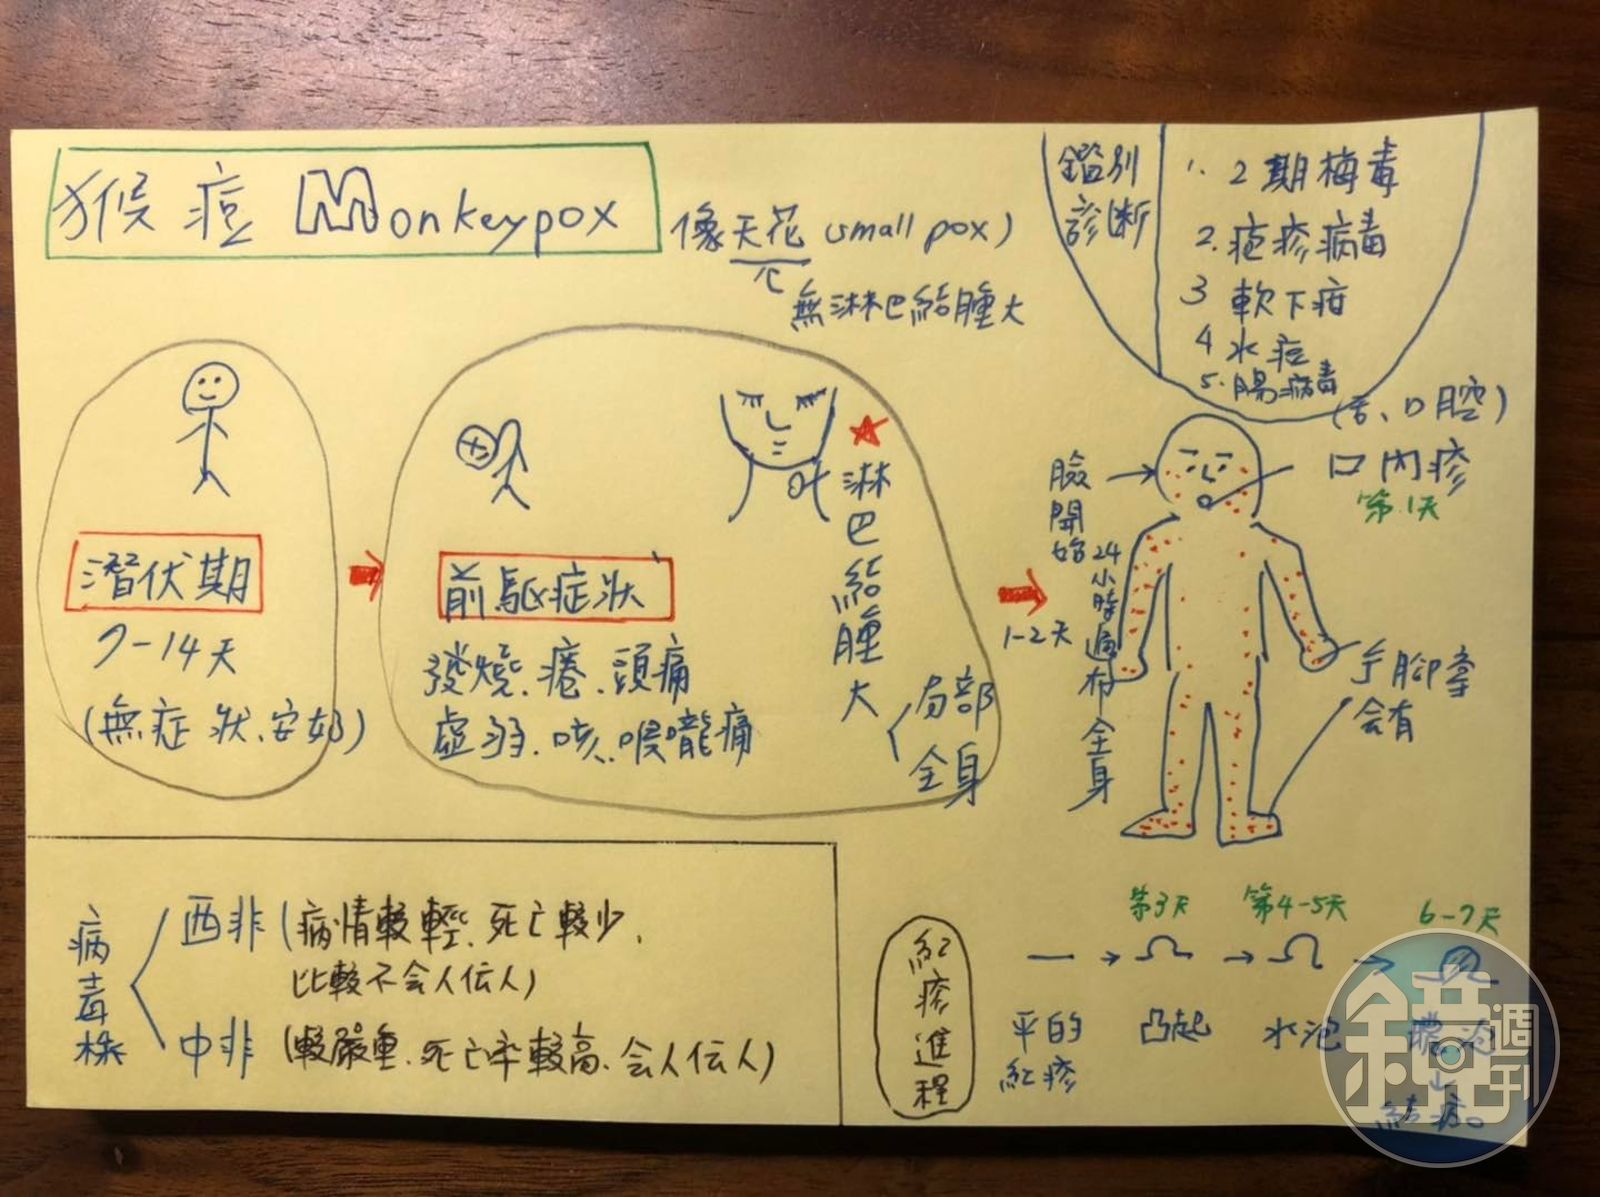 猴痘 Monkeypox
像天花 (small pox)
無淋巴結腫大
鑑別
診斷
1. 2期梅毒
2. 疱疹病毒
3 軟下疳
4 水痘
5. 腸病毒
潛伏期
7-14天
(無症狀、安好)
前驅症狀
發燒、痠、頭痛
虛弱、咳、喉嚨痛
淋巴結腫大
局部
全身
1-2天
臉開始
24小時遍布全身
(舌、口腔)
口內疹
第1天
手腳掌
会有
病毒株
西非 (病情較輕、死亡較少、
比較不会人伝人)
中非 (較嚴重、死亡率較高、会人伝人)
紅疹進程
第3天
第4-5天
6-7天
平的
紅疹
凸起
水泡
膿泡
結痂
鏡週刊